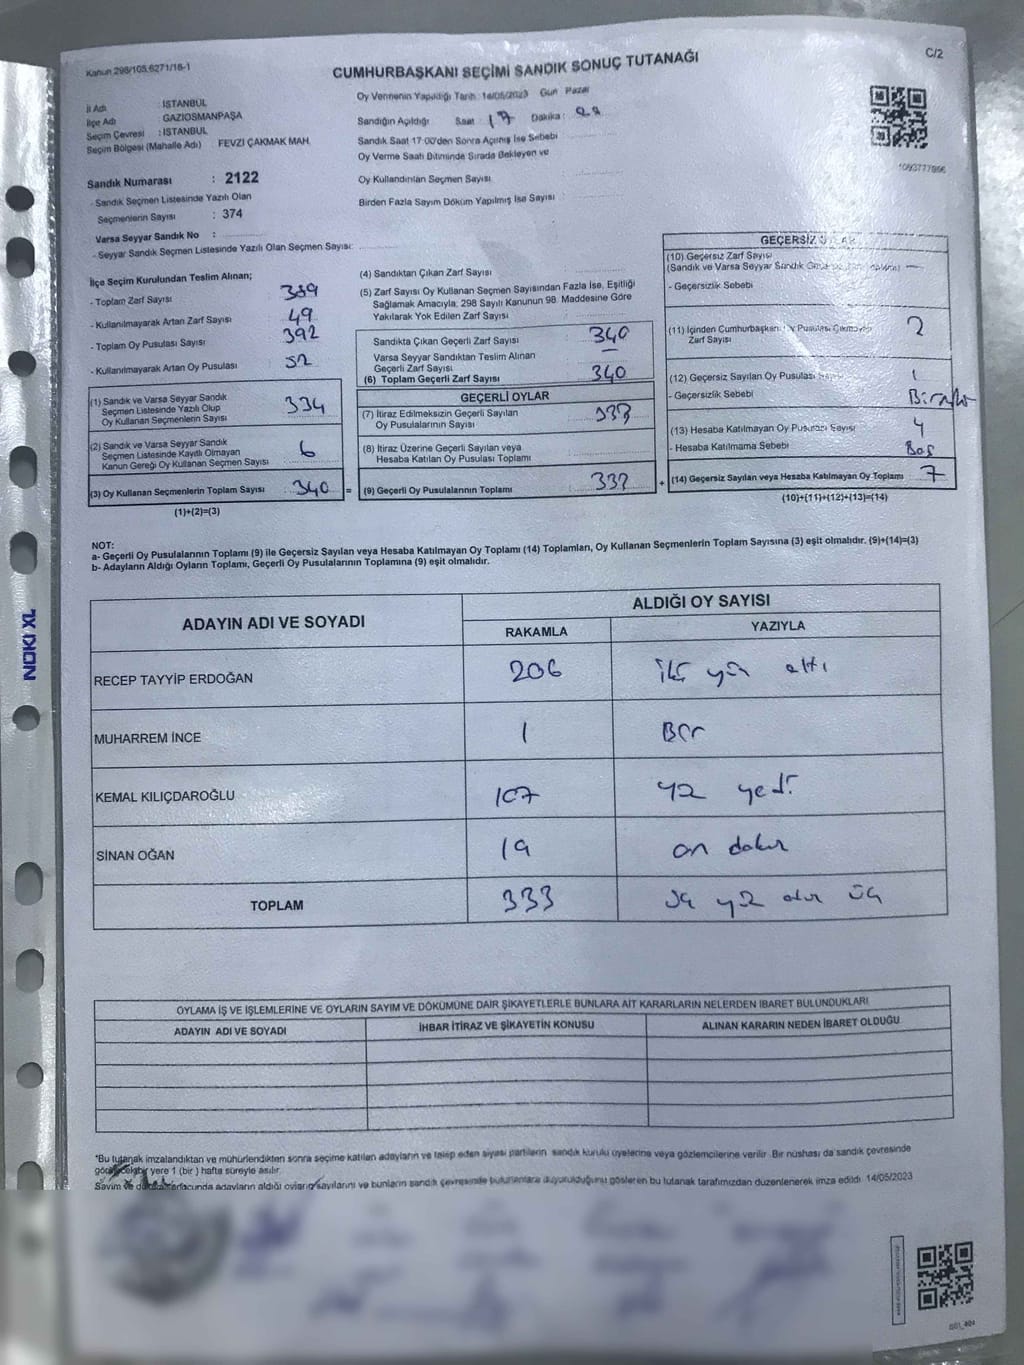 Kanun 298/105,6271/16-1
C/2
CUMHURBAŞKANI SEÇİMİ SANDIK SONUÇ TUTANAĞI
İl Adı : İSTANBUL
İlçe Adı : GAZİOSMANPAŞA
Seçim Çevresi : İSTANBUL
Seçim Bölgesi (Mahalle Adı) FEVZİ ÇAKMAK MAH.
Sandık Numarası : 2122
- Sandık Seçmen Listesinde Yazılı Olan
Seçmenlerin Sayısı : 374
Varsa Seyyar Sandık No :
- Seyyar Sandık Seçmen Listesinde Yazılı Olan Seçmen Sayısı:
Oy Vermenin Yapıldığı Tarih: 14/05/2023 Gün Pazar
Sandığın Açıldığı Saat 17 Dakika:
Sandık Saat 17:00'den Sonra Açılmış İse Sebebi
Oy Verme Saati Bitiminde Sırada Bekleyen ve
Oy Kullandırılan Seçmen Sayısı
Birden Fazla Sayım Döküm Yapılmış İse Sayısı
1093777866
İlçe Seçim Kurulundan Teslim Alınan;
- Toplam Zarf Sayısı 389
- Kullanılmayarak Artan Zarf Sayısı 49
- Toplam Oy Pusulası Sayısı 392
- Kullanılmayarak Artan Oy Pusulası 52
(1) Sandık ve Varsa Seyyar Sandık
Seçmen Listesinde Yazılı Olup
Oy Kullanan Seçmenlerin Sayısı 334
(2) Sandık ve Varsa Seyyar Sandık
Seçmen Listesinde Kayıtlı Olmayan
Kanun Gereği Oy Kullanan Seçmen Sayısı 6
(3) Oy Kullanan Seçmenlerin Toplam Sayısı 340 =
(1)+(2)=(3)
(4) Sandıktan Çıkan Zarf Sayısı
(5) Zarf Sayısı Oy Kullanan Seçmen Sayısından Fazla İse, Eşitliği
Sağlamak Amacıyla, 298 Sayılı Kanunun 98. Maddesine Göre
Yakılarak Yok Edilen Zarf Sayısı
Sandıkta Çıkan Geçerli Zarf Sayısı 340
Varsa Seyyar Sandıktan Teslim Alınan
Geçerli Zarf Sayısı
(6) Toplam Geçerli Zarf Sayısı 340
GEÇERLİ OYLAR
(7) İtiraz Edilmeksizin Geçerli Sayılan
Oy Pusulalarının Sayısı 333
(8) İtiraz Üzerine Geçerli Sayılan veya
Hesaba Katılan Oy Pusulası Toplamı
(9) Geçerli Oy Pusulalarının Toplamı 333 +
GEÇERSİZ OYLAR
(10) Geçersiz Zarf Sayısı
(Sandık ve Varsa Seyyar Sandık
- Geçersizlik Sebebi
(11) İçinden Cumhurbaşkanı Oy Pusulası Çıkmayan
Zarf Sayısı 2
(12) Geçersiz Sayılan Oy Pusulası Sayısı 1
- Geçersizlik Sebebi
(13) Hesaba Katılmayan Oy Pusulası Sayısı 4
- Hesaba Katılmama Sebebi Boş
(14) Geçersiz Sayılan veya Hesaba Katılmayan Oy Toplamı 7
(10)+(11)+(12)+(13)=(14)
NOT:
a- Geçerli Oy Pusulalarının Toplamı (9) ile Geçersiz Sayılan veya Hesaba Katılmayan Oy Toplamı (14) Toplamları, Oy Kullanan Seçmenlerin Toplam Sayısına (3) eşit olmalıdır. (9)+(14)=(3)
b- Adayların Aldığı Oyların Toplamı, Geçerli Oy Pusulalarının Toplamına (9) eşit olmalıdır.
ADAYIN ADI VE SOYADI
ALDIĞI OY SAYISI
RAKAMLA YAZIYLA
RECEP TAYYİP ERDOĞAN 206 iki yüz altı
MUHARREM İNCE 1 Bir
KEMAL KILIÇDAROĞLU 107 yüz yedi
SİNAN OĞAN 19 on dokuz
TOPLAM 333 üç yüz otuz üç
OYLAMA İŞ VE İŞLEMLERİNE VE OYLARIN SAYIM VE DÖKÜMÜNE DAİR ŞİKAYETLERLE BUNLARA AİT KARARLARIN NELERDEN İBARET BULUNDUKLARI
ADAYIN ADI VE SOYADI İHBAR İTİRAZ VE ŞİKAYETİN KONUSU ALINAN KARARIN NEDEN İBARET OLDUĞU
*Bu tutanak imzalandıktan ve mühürlendikten sonra seçime katılan adayların ve talep eden siyasi partilerin sandık kurulu üyelerine veya gözlemcilerine verilir. Bir nüshası da sandık çevresinde
görülecek bir yere 1 (bir ) hafta süreyle asılır.
Sayım ve adayların aldığı oyların sayılarını ve bunların sandık çevresinde bulunanlara duyurulduğunu gösteren bu tutanak tarafımızdan düzenlenerek imza edildi. 14/05/2023
NOKI XL